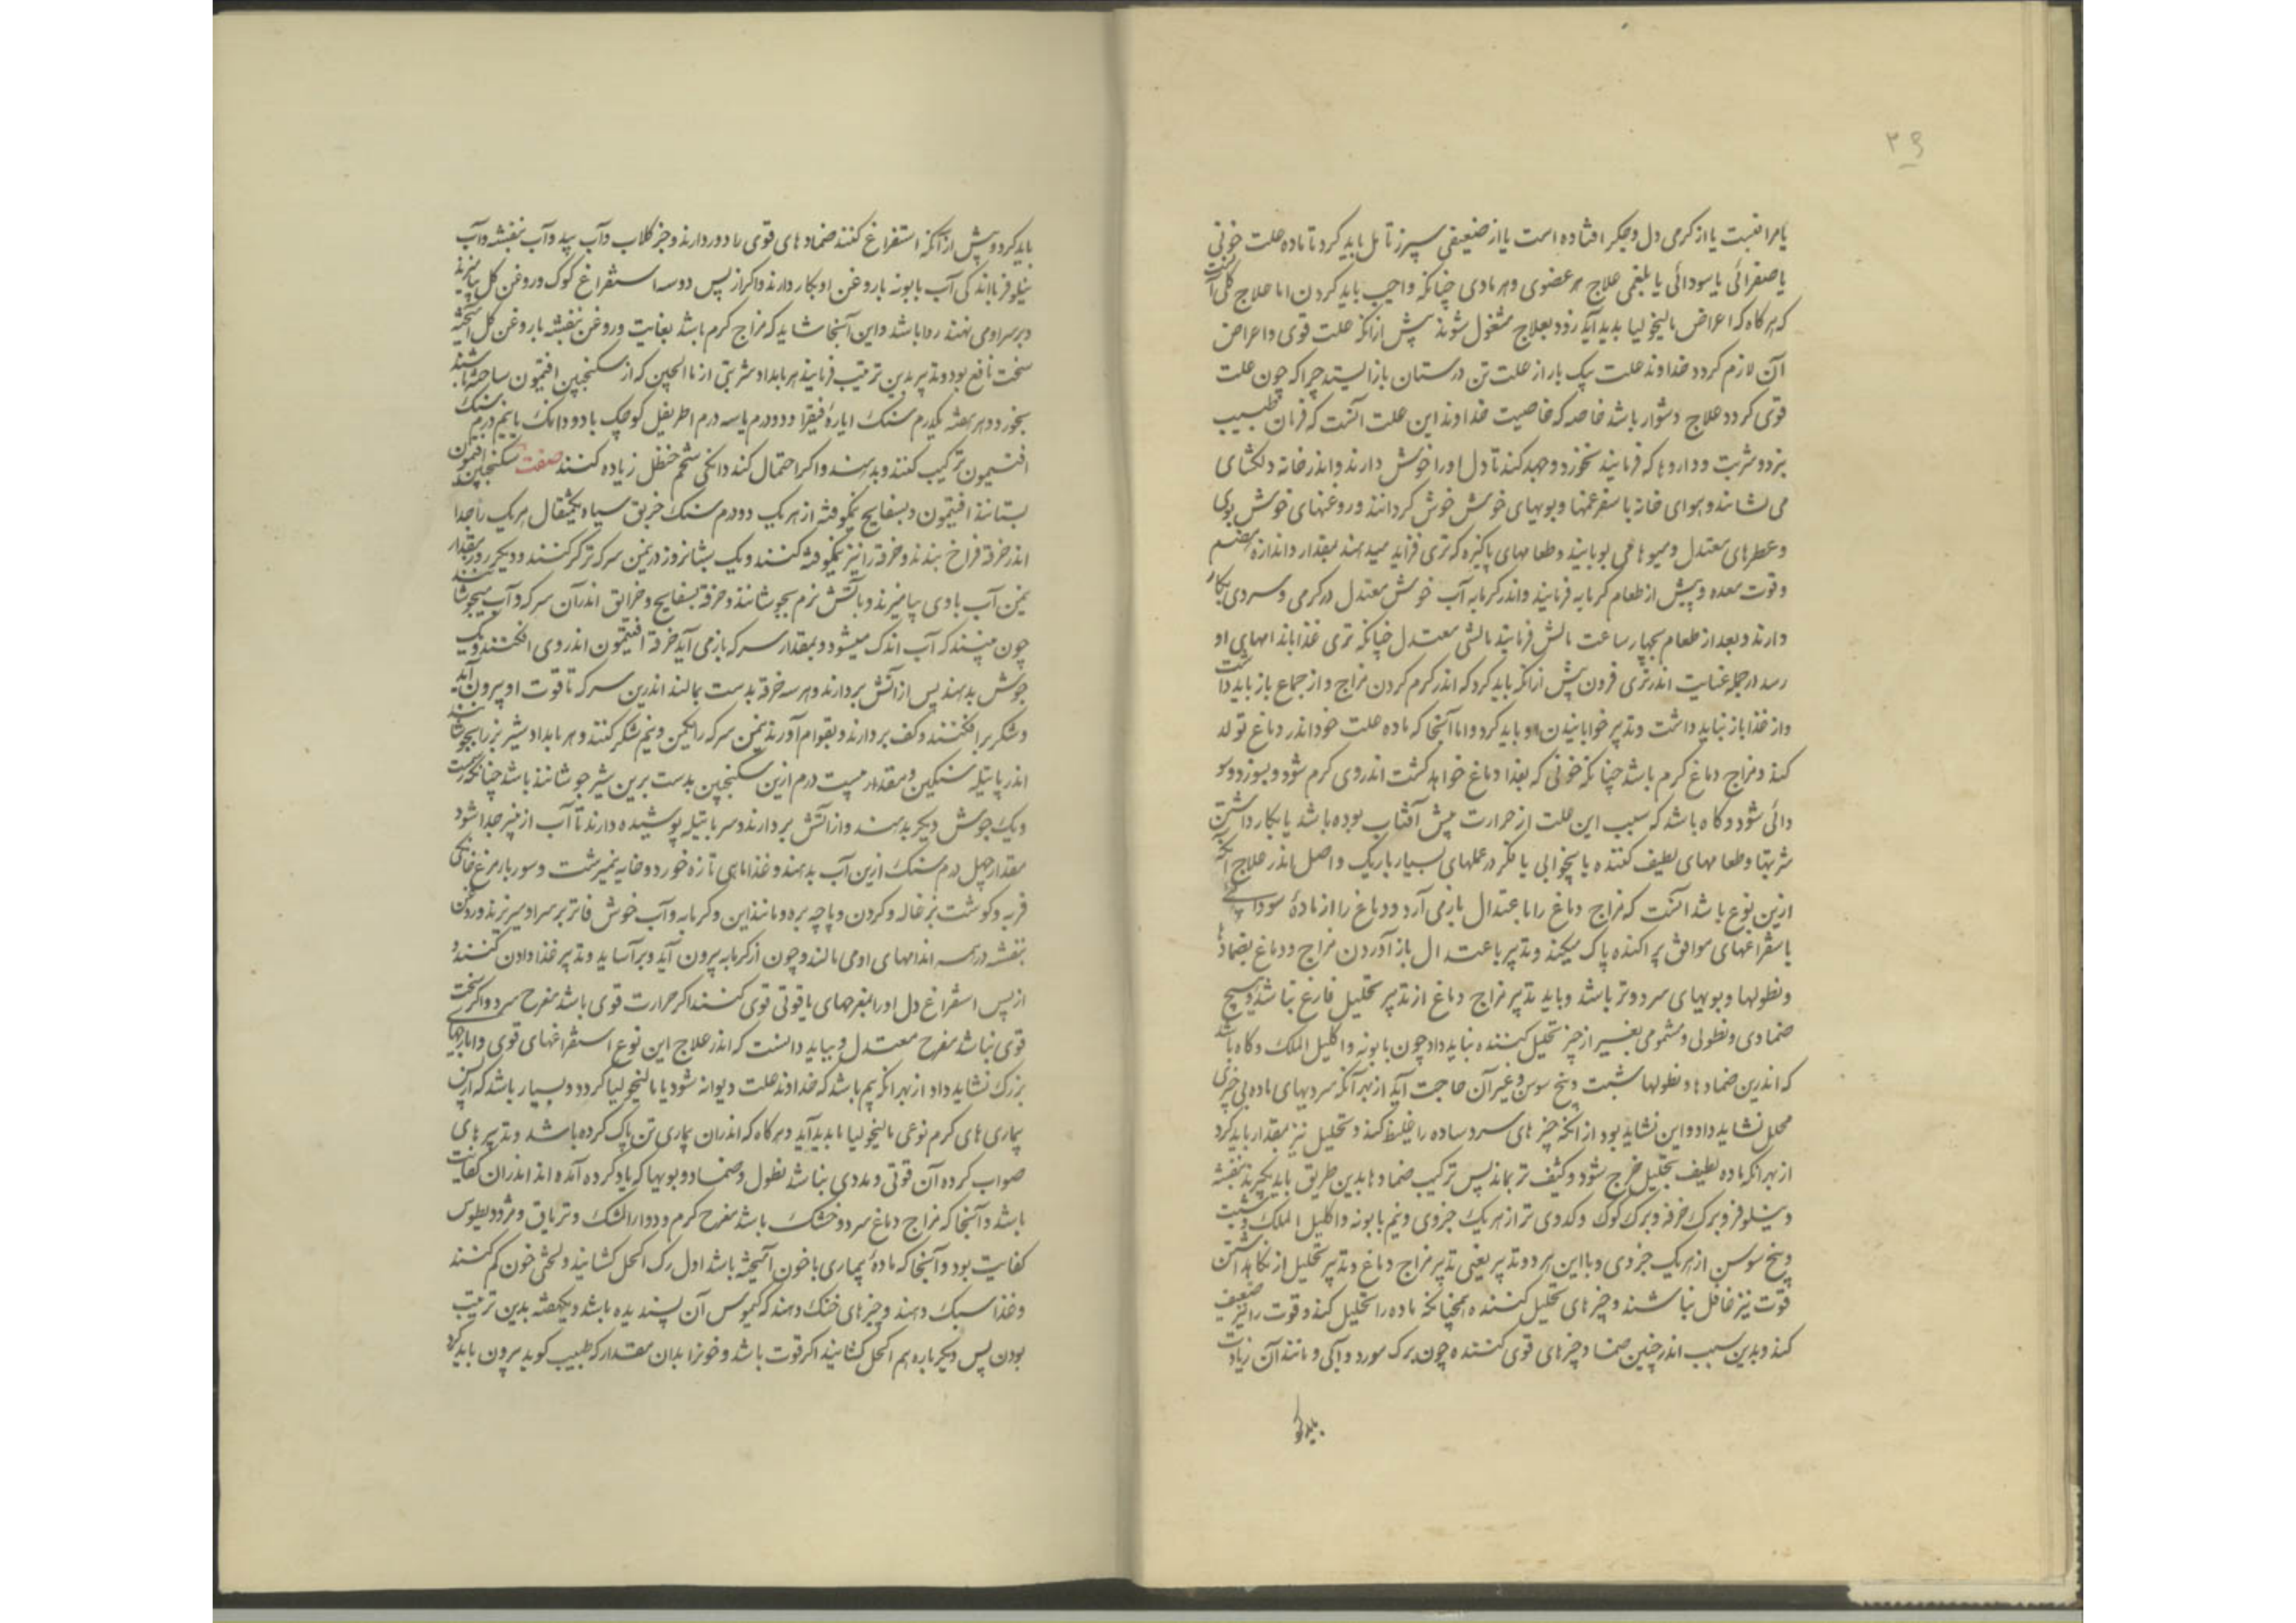 ۳۹
یا مراقیست یا از کرمی دل و جکر افتاده است یا از ضعیفی سپرز تامل باید کرد تا ماده علت خونی
یا صفرائی یا سودائی یا بلغمی علاج هر عضوی و هر مادی چنانکه واجب باید کردن اما علاج کلی آنست
که هرکاه که اعراض مالیخولیا بدید آید زود بعلاج مشغول شوند پیش ازانکه علت قوی و اعراض
آن لازم کردد خداوند علت بیک بار از علت تن درستان بازایستد چرا که چون علت
قوی کردد علاج دشوار باشد خاصه که خاصیت خداوند این علت آنست که فرمان طبیب
برد و شربت و داروها که فرمایند نخورد و جهد کند تا دل او را خوش دارند و اندر خانه دلکشای
می نشانند و هوای خانه با سفرغمها و بویهای خوش خوش کردانند و روغنهای خوش بوی
و عطرهای معتدل و میوها می بویانند و طعامهای پاکیزه که تری فزاید میدهند بمقدار و اندازه هضم
و قوت معده و پیش از طعام کرمابه فرمایند و اندر کرمابه آب خوش معتدل در کرمی و سردی بکار
دارند و بعد از طعام بچهار ساعت مالش فرمایند مالشی معتدل چنانکه تری غذا باندامهای او
رسد در جمله عنایت اندر تری فزودن بیش ازانکه باید کرد که اندر کرم کردن مزاج و از جماع باز باید داشت
و از غذا باز نباید داشت و تدبیر خوابانیدن او باید کرد و اما آنجا که ماده علت خود اندر دماغ تولد
کند و مزاج دماغ کرم باشد چنانکه خونی که بغذا دماغ خواهد کشت اندروی کرم شود و بسوزد و سو
دائی شود و کاه باشد که سبب این علت از حرارت پیش آفتاب بوده باشد یا بکار داشتن
شربتها و طعامهای لطیف کننده یا بیخوابی یا فکر در عملهای بسیار باریک و اصل اندر علاج آنچه
ازین نوع باشد آنست که مزاج دماغ را باعتدال باز می آرد و دماغ را از ماده سودائے
باستفراغهای موافق پراکنده پاک میکند و تدبیر باعتدال باز آوردن مزاج و دماغ بضمادها
و نطولها و بویهای سرد و تر باشد و باید تدبیر مزاج دماغ از تدبیر تحلیل فارغ نباشد و هیچ
ضمادی و نطولی و مشمومی بغیر از چیز تحلیل کننده نباید داد چون بابونه و اکلیل الملک و کاه باشد
که اندرین ضمادها و نطولها شبت و بیخ سوسن و غیر آن حاجت آید از بهر آنکه سردیهای ماده بی چیزی
محلل نشاید داد و این نشاید بود از انکه چیز های سرد ساده را غلیظ کند و تحلیل نیز بمقدار باید کرد
از بهر انکه ماده لطیف بتحلیل خرج شود و کثیف تر بماند پس ترکیب ضمادها بدین طریق باید بکیرند بنفشه
و نیلوفر و برک خرفه و برک کوک و کدوی تر از هر یک جزوی و نیم بابونه و اکلیل الملک و شبت
و بیخ سوسن از هر یک جزوی و با این هر دو تدبیر یعنی تدبیر مزاج دماغ و تدبیر تحلیل از نکاهداشتن
قوّت نیز غافل نباشند و چیز های تحلیل کننده همچنانکه ماده را تحلیل کند و قوت را نیز ضعیف
کند و بدین سبب اندر چنین ضماد چیز های قوی کننده چون برک مورد و آبی و مانند آن زیادت
باید کرد
باید کرد و پیش ازانکه استفراغ کنند ضمادهای قوی را دور دارند و جز کلاب و آب بید و آب بنفشه و آب
نیلوفر با اندکی آب بابونه یا روغن او بکار دارند و اکر از پس دو سه استفراغ کوک و روغن کل بیامیزند
و بر سر او می نهند روا باشد و این آنجا شاید که مزاج کرم باشد بغایت و روغن بنفشه با روغن کل آمیخته
سخت نافع بود و تدبیر بدین ترتیب فرمایند هر بامداد شربتی از ماالجبن که از سکنجبین افتیمون ساخته باشند
بخورد و هر هفته یکدرم سنک ایارۀ فیقرا و دو درم یا سه درم اطریفل کوچک با دو دانک یا نیم درم سنک
افتیمون ترکیب کنند و بدهند و اکر احتمال کند دانکی شحم حنظل زیاده کنند صفت سکنجبین افتیمون
بستانند افتیمون و بسفایج نیمکوفته از هر یک دو درم سنک خربق سیاه یکمثقال هر یک را جدا
اندر خرقه فراخ بندند و خرقه را نیز نیمکوفته کنند و یک شبانروز در یمن سرکه تر کنند و دیکر روز بمقدار
یمن آب با وی بیامیزند و باتش نرم بجوشانند و خرقه بسفایج و خرابق اندران سرکه و آب میجوشانند
چون ببینند که آب اندک میشود و بمقدار سرکه باز می آید خرقه افتیمون اندر وی افکنند و یک
جوش بدهند پس از اتش بردارند و هر سه خرقه بدست بمالند اندرین سرکه تا قوت او بیرون آید
و شکر بر افکنند و کف بردارند و بقوام آورند یمن سرکه را یکمن و نیم شکر کنند و هر بامداد شیر بز را بجوشانند
اندر پاتیله سنکین و مقدار بیست درم ازین سکنجبین بدست برین شیر جوشانند باشد چنانکه رسمست
و یک جوش دیکر بدهند و از اتش بردارند و سر پاتیله پوشیده دارند تا آب از پنیر جدا شود
مقدار چهل درم سنک ازین آب بدهند و غذا ماهی تازه خورد و خایه نیمبرشت و سوربا مرغ خانکی
فربه و کوشت بزغاله و کردن و پاچه بره و مانند این و کرمابه و آب خوش فاتر بر سر او میریزند و روغن
بنفشه در همه اندامهای او می مالند و چون از کرمابه بیرون آید و برآساید و تدبیر غذا دادن کنند و
از پس استفراغ دل او را بمفرحهای یاقوتی قوی کنند اکر حرارت قوی باشد مفرح سرد و اکر سخت
قوی نباشد مفرح معتدل و بباید دانست که اندر علاج این نوع استفراغهای قوی و ایارجهاے
بزرک نشاید داد از بهر انکه بیم باشد که خداوند علت دیوانه شود یا مالیخولیا کردد و بسیار باشد که از پس
بیماری های کرم نوعی مالیخولیا بدید آید و هرکاه که اندران بیماری تن پاک کرده باشند و تدبیر های
صواب کرده آن قوتی و مددی نباشد نطول و ضماد و بویها که یاد کرده آمده اند اندران کفایت
باشد و آنجا که مزاج دماغ سرد و خشک باشد مفرح کرم و دوا المشک و تریاق و مثرودیطوس
کفایت بود و آنجا که مادۀ بیماری با خون آمیخته باشد اول رک اکحل کشایند و لختی خون کم کنند
و غذا سبک دهند و چیز های خنک دهند که کیموس آن پسندیده باشد و یکهفته بدین ترتیب
بودن پس دیکر باره هم اکحل کشانید اکر قوت باشد و خونرا بدان مقدار که طبیب کوید بیرون باید کرد